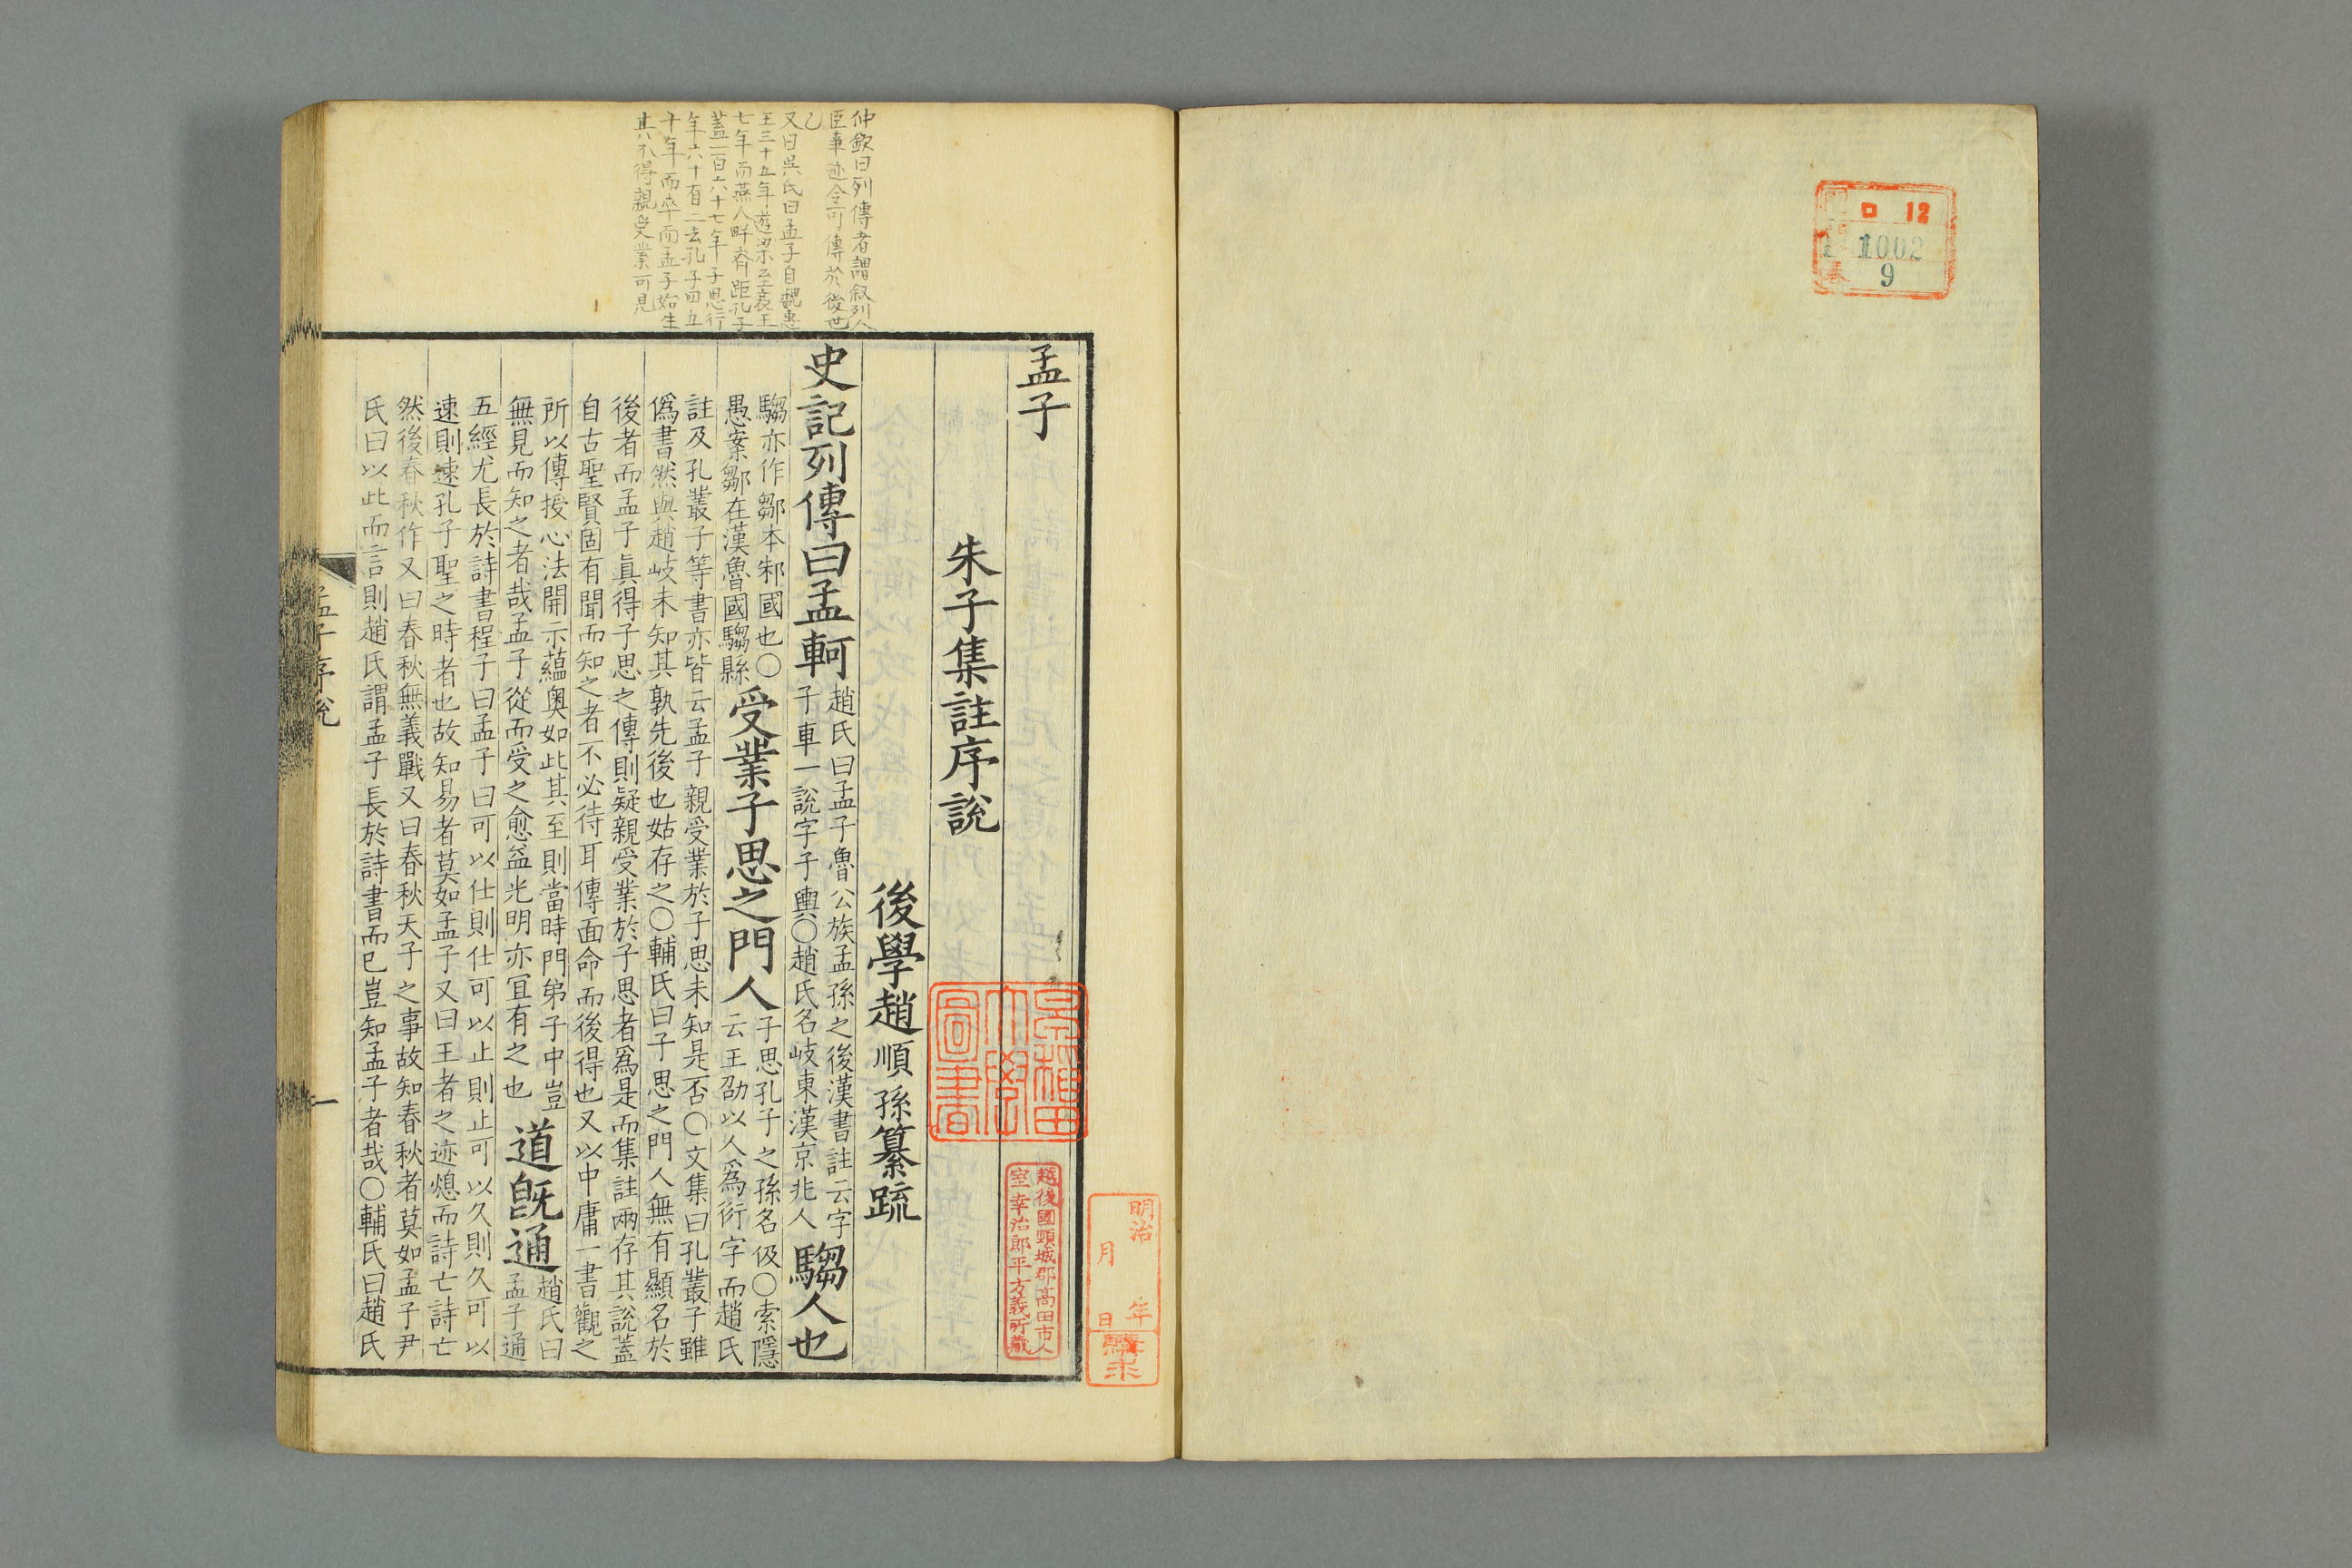 ロ 12
1002
9
仲欽曰列傳者謂叙列人
臣事迹令可傳於後世
又曰吳氏曰孟子自魏惠
王三十五年遊梁至襄王
七年而燕人畔齊距孔子
蓋一百六十七年子思行
年六十有二去孔子四五
十年而卒而孟子始生
其不得親受業可見
孟子
朱子集註序說
後學趙順孫纂疏
史記列傳曰孟軻
趙氏曰孟子魯公族孟孫之後漢書註云字
子車一說字子輿〇趙氏名岐東漢京兆人
騶人也
騶亦作鄒本邾國也〇
愚案鄒在漢魯國騶縣
受業子思之門人
子思孔子之孫名伋〇索隱
云王劭以人爲衍字而趙氏
註及孔叢子等書亦皆云孟子親受業於子思未知是否〇文集曰孔叢子雖
僞書然與趙岐未知其孰先後也姑存之〇輔氏曰子思之門人無有顯名於
後者而孟子眞得子思之傳則疑親受業於子思者爲是而集註兩存其說蓋
自古聖賢固有聞而知之者不必待耳傳面命而後得也又以中庸一書觀之
所以傳授心法開示蘊奧如此其至則當時門弟子中豈
無見而知之者哉孟子從而受之愈益光明亦宜有之也
道旣通
趙氏曰
孟子通
五經尤長於詩書程子曰孟子曰可以仕則仕可以止則止可以久則久可以
速則速孔子聖之時者也故知易者莫如孟子又曰王者之迹熄而詩亡詩亡
然後春秋作又曰春秋無義戰又曰春秋天子之事故知春秋者莫如孟子尹
氏曰以此而言則趙氏謂孟子長於詩書而已豈知孟子者哉〇輔氏曰趙氏
孟子序說
一
早稲田
大學
圖書
越後國頸城郡高田市人
室幸治郎平方義所藏
明治 年
月 日
購求